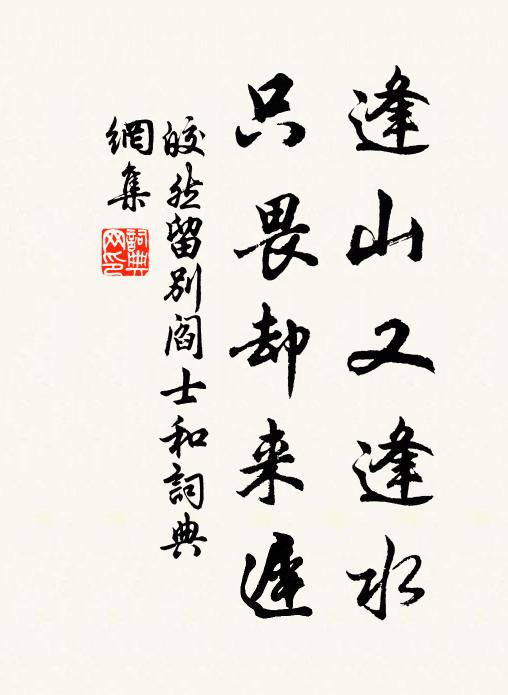 逢山又逢水
只畏却来遲
皎然留别阎士和詞典
網集
詞典网印